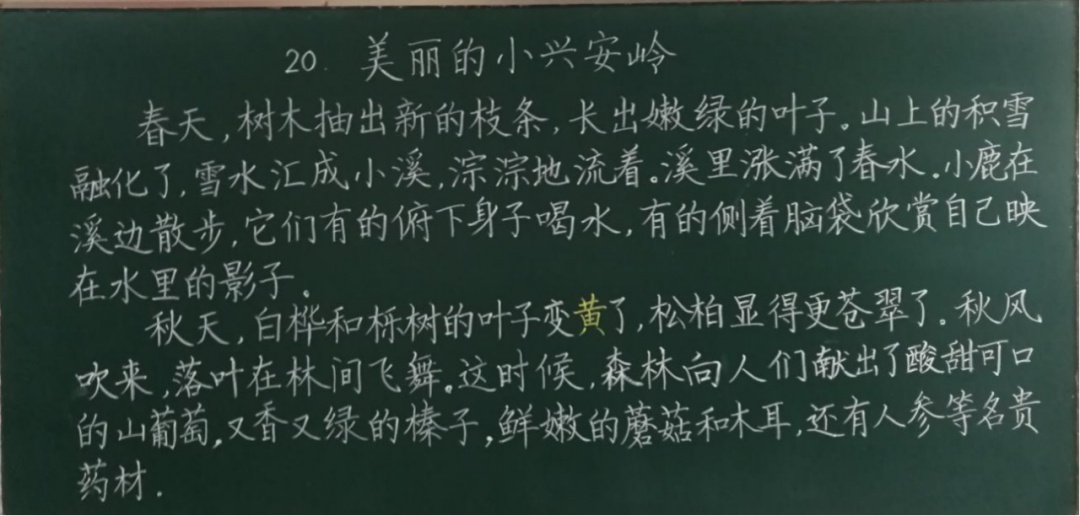 20. 美丽的小兴安岭
春天,树木抽出新的枝条,长出嫩绿的叶子。山上的积雪
融化了,雪水汇成小溪,淙淙地流着。溪里涨满了春水.小鹿在
溪边散步,它们有的俯下身子喝水,有的侧着脑袋欣赏自己映
在水里的影子。
秋天,白桦和栎树的叶子变黄了,松柏显得更苍翠了。秋风
吹来,落叶在林间飞舞。这时候,森林向人们献出了酸甜可口
的山葡萄,又香又绿的榛子,鲜嫩的蘑菇和木耳,还有人参等名贵
药材.